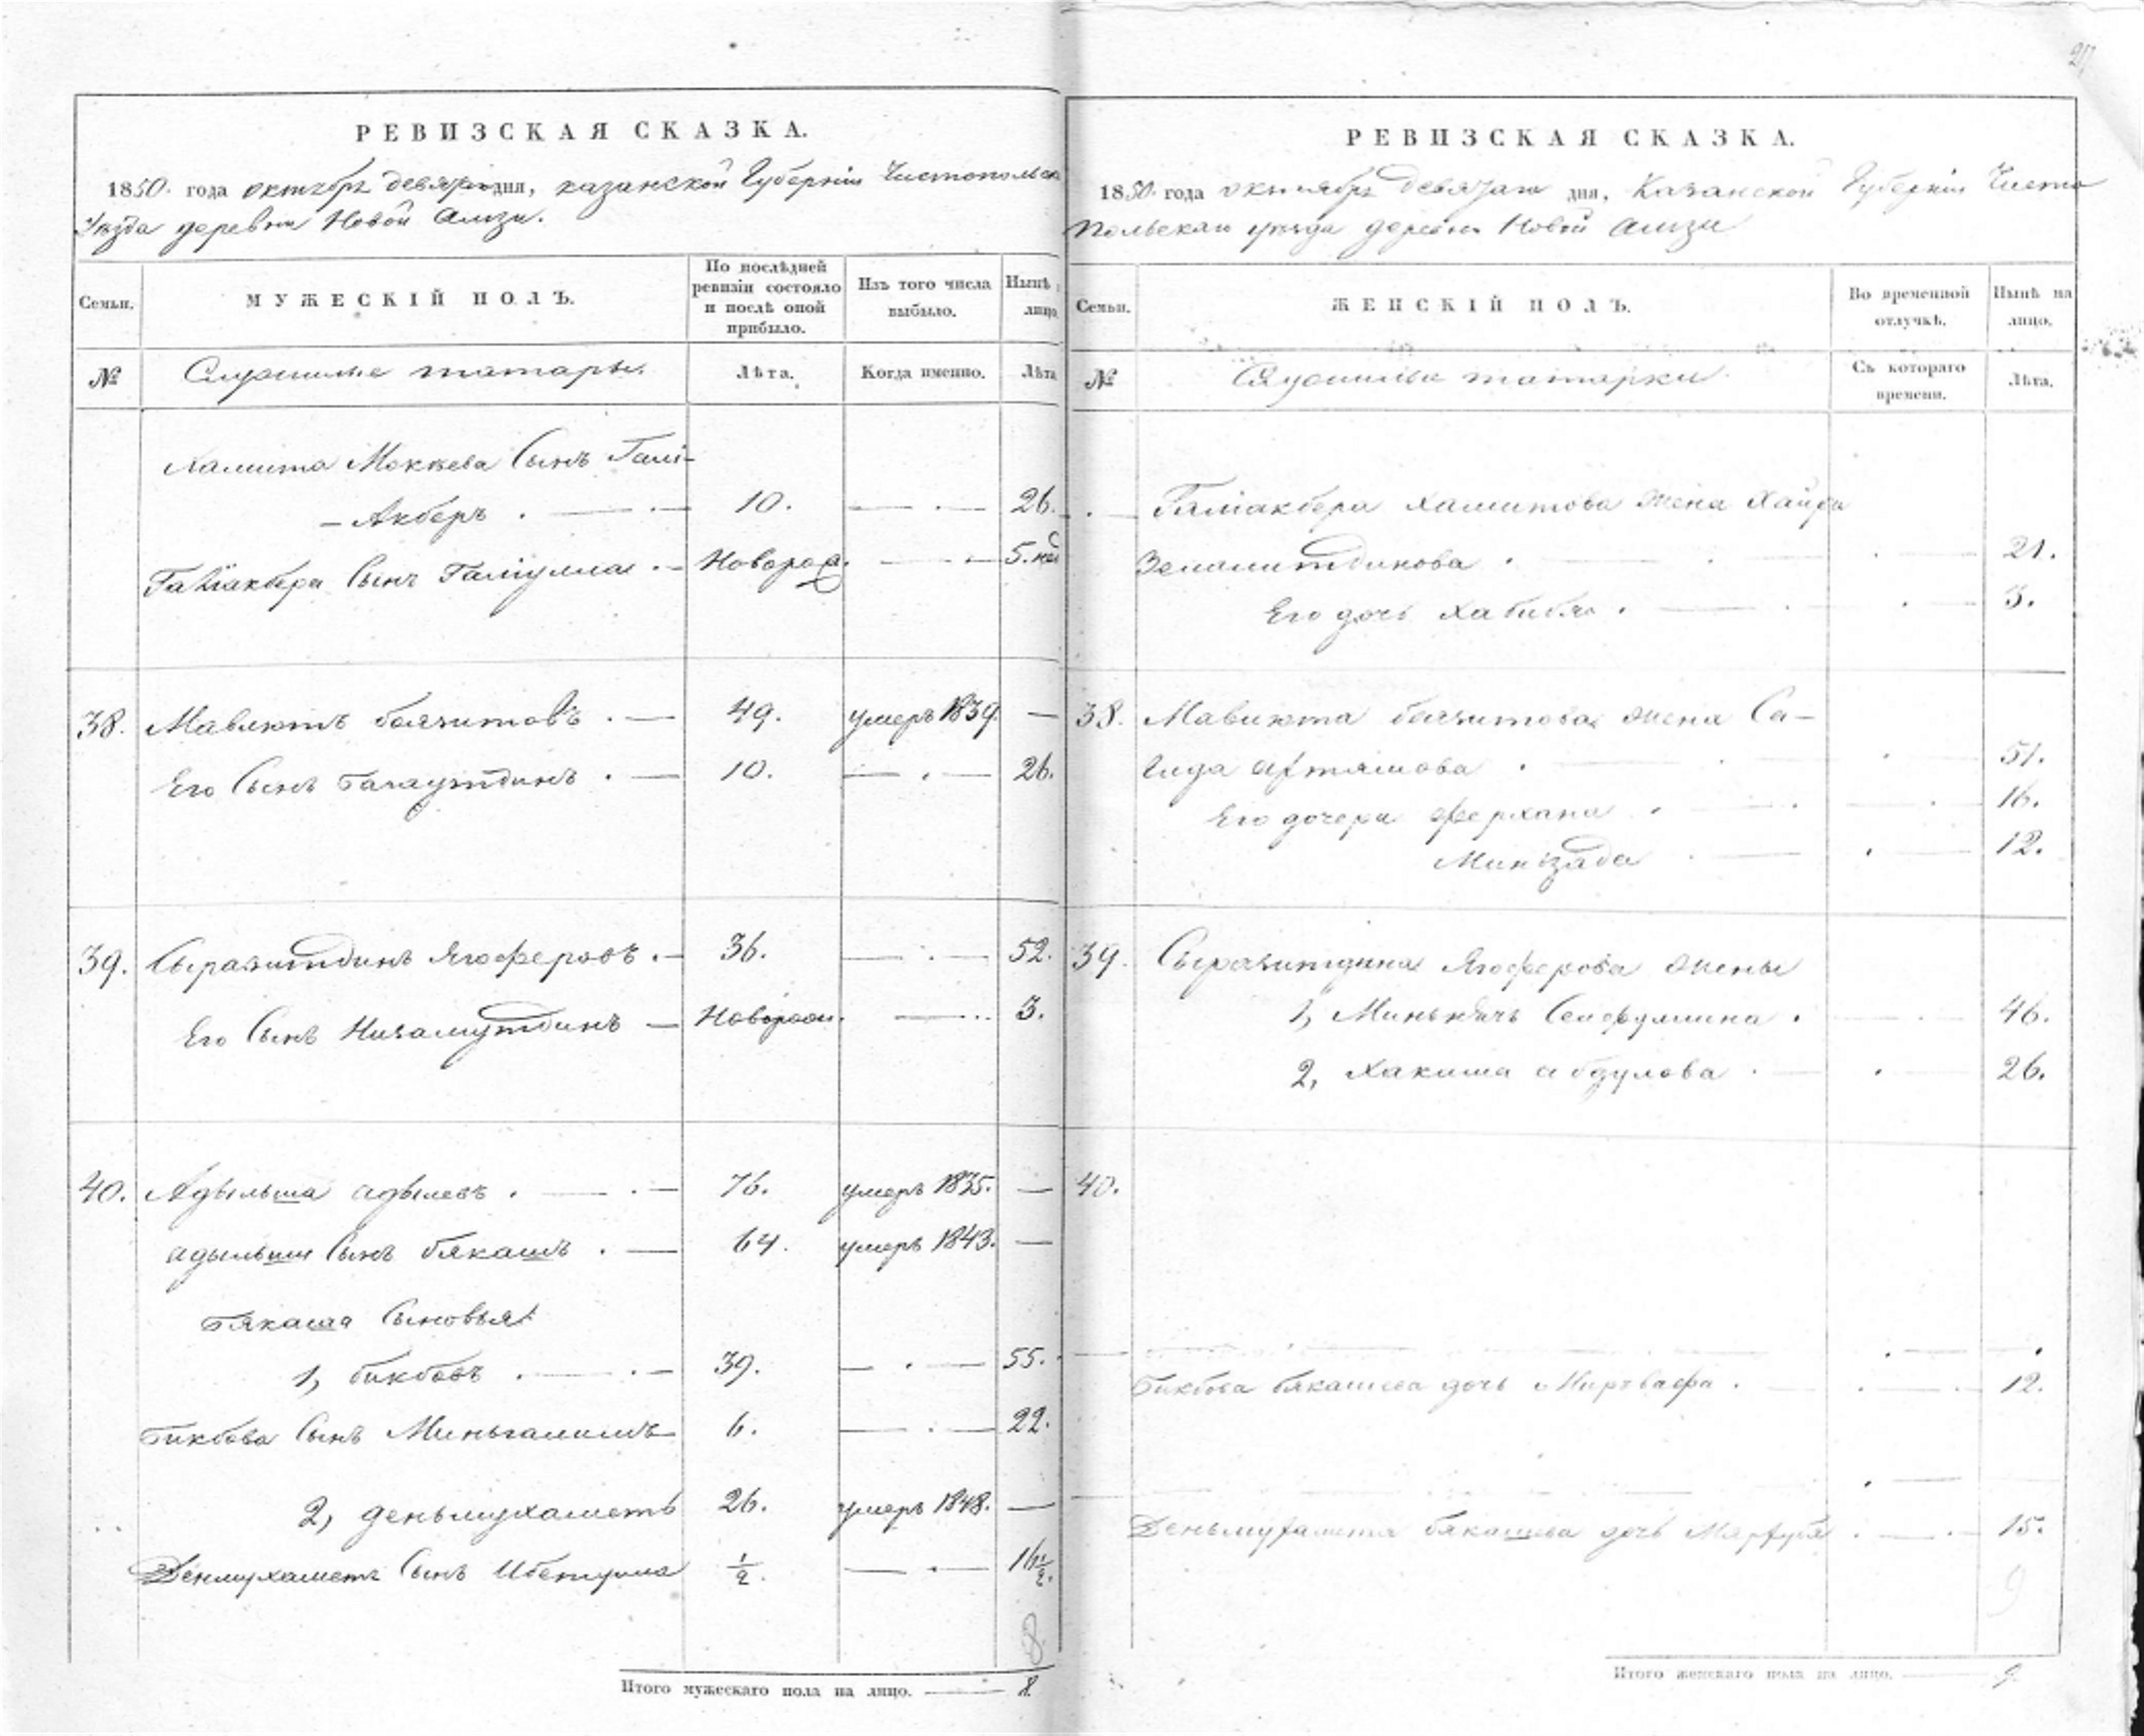 РЕВИЗСКАЯ СКАЗКА.
1850. года октября девятаго дня, казанской Губернiи Чистопольска
Уѣзда деревни Новой Амзи.
Семьи.
МУЖЕСКІЙ ПОЛЪ.
По послѣдней
ревизіи состояло
и послѣ оной
прибыло.
Изъ того числа
выбыло.
Нынѣ
лицо
№
Служилые татары.
Лѣта.
Когда именно.
Лѣта
Хамита Меккева Сынъ Галi-
-Акберъ . 10. 26.
Галiакбера Сынъ Галiулла . Новорож. 5. нед
38. Мавлютъ баязитовъ . 49. умеръ 1839 —
Его Сынъ Галаутдинъ . 10. 26.
39. Сыразитдинъ Ягоферовъ . 36. 52.
Его Сынъ Низамутдинъ — Новорож. 3.
40. Адыльша адылевъ . 76. умеръ 1835. —
адыльши Сынъ бякашъ . 64. умеръ 1843. —
бякаша Сыновья
1, бикбовъ . 39. 55.
бикбова Сынъ Миньгалимъ 6. 22.
2, деньмухаметъ 26. умеръ 1848. —
Денмухамета Сынъ Ибетулла ½. 16½.
8
Итого мужескаго пола на лицо. 8.
РЕВИЗСКАЯ СКАЗКА.
1850. года октября девятаго дня, Казанской Губернiи Чисто
польскаго уѣзда деревни Новой Амзи
Семьи.
ЖЕНСКІЙ ПОЛЪ.
Во временной
отлучкѣ.
Нынѣ на
лицо.
№
Служилыя татарки.
Съ котораго
времени.
Лѣта.
Галiакбера Хамитова жена Хайра
Земалитдинова . 21.
Его дочь Хабибя . 3.
38. Мавлюта баязитова жена Са-
гида Артяшова . 51.
Его дочери Ферхана . 16.
Минзада 12.
39. Сыразитдина Ягоферова жены
1, Минькяй Сейфулмина . 46.
2, Хакима абдулова . 26.
40.
бикбова бякашева дочь Миръвафа . 12.
Деньмухамета бякашева дочь Марфуба . 15.
9
Итого женскаго пола на лицо. 9.